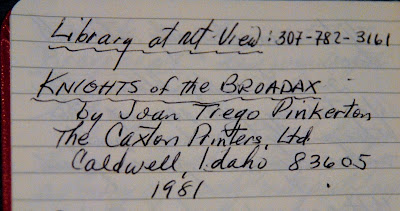 Library at mt. View: 307-782-3161
KNIGHTS of the BROADAX
by Joan Trego Pinkerton
The Caxton Printers, Ltd
Caldwell, Idaho 83605
1981